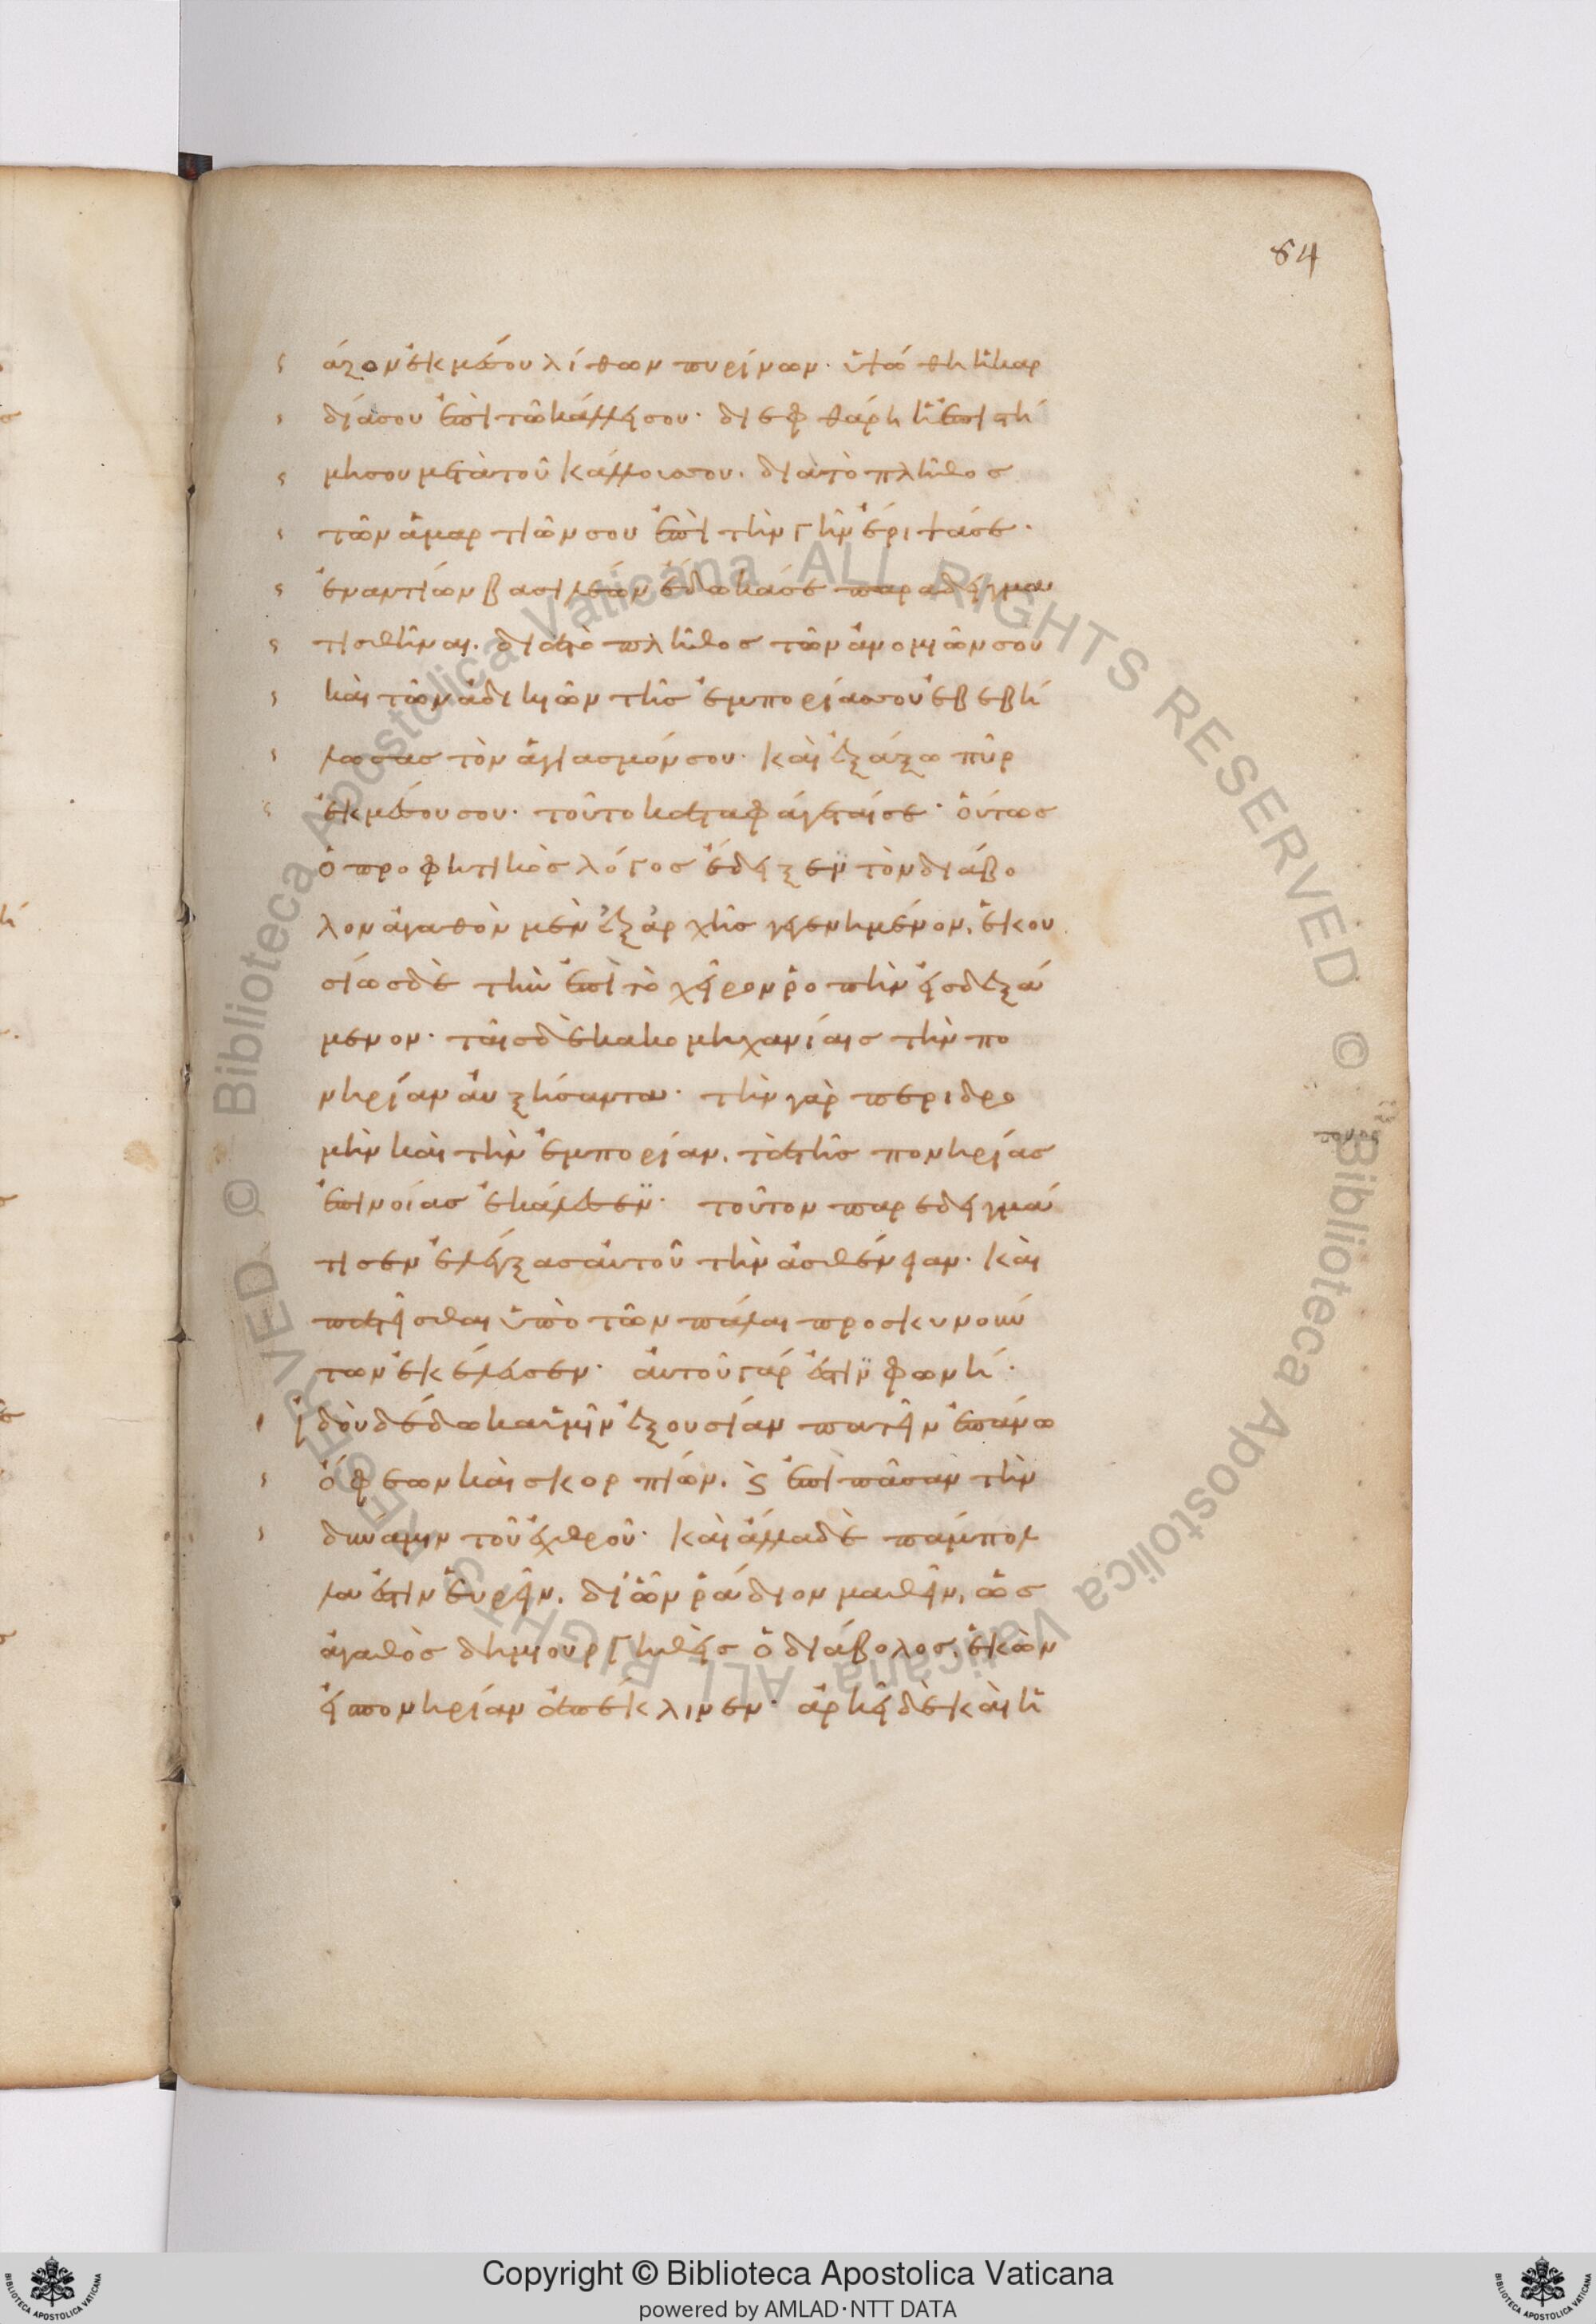 84
άζον ἐκ μέσου λίθων πυρίνων· ὑψώθη ἡ καρ
δία σου ἐπὶ τῶ κάλλει σου· διεφθάρη ἡ ἐπιστή
μη σου μετὰ τοῦ κάλλους σου. διὰ τὸ πλῆθος
τῶν ἁμαρτιῶν σου ἐπὶ τὴν γῆν ἔριψά σε·
ἐναντίων βασιλέων ἔδωκά σε παραδειγμα
τισθῆναι. διὰ τὸ πλῆθος τῶν ἀνομιῶν σου
καὶ τῶν ἀδικιῶν τῆς ἐμπορίας σου ἐβεβή
λωσας τὸν ἁγιασμόν σου· καὶ ἐξάξω πῦρ
ἐκ μέσου σου· τοῦτο καταφάγεταί σε· οὕτως
ὁ προφητικὸς λόγος ἔδειξεν τὸν διάβο
λον ἀγαθὸν μὲν ἐξαρχῆς γεγενημένον, ἑκου
σίως δὲ τὴν ἐπὶ τὸ χεῖρον ῥοπὴν εἰσδεξά
μενον· ταῖς δὲ κακομηχανίαις τὴν πο
νηρίαν αὐξήσαντα· τὴν γὰρ περιδρο
μὴν καὶ τὴν ἐμπορίαν, τὰς τῆς πονηρίας
ἐπινοίας ἐκάλεσεν· τοῦτον παρεδειγμά
τισεν ἐλέγξας αὐτοῦ τὴν ἀσθένειαν· καὶ
πατεῖσθαι ὑπὸ τῶν πάλαι προσκυνούν
των ἐκέλευσεν· αὐτοῦ γάρ ἐστιν φωνή·
ἰδοὺ δέδωκα ὑμῖν ἐξουσίαν πατεῖν ἐπάνω
ὄφεων καὶ σκορπίων, ϛ ἐπὶ πᾶσαν τὴν
δύναμιν τοῦ ἐχθροῦ· καὶ ἄλλα δὲ πάμπολ
λα ἐστὶν εὑρεῖν, δι' ὧν ῥάδιον μαθεῖν, ὡς
ἀγαθὸς δημιουργηθεὶς ὁ διάβολος, ἑκὼν
εἰς πονηρίαν ἀπέκλινεν· ἀρκεῖ δὲ καὶ ἡ
Copyright © Biblioteca Apostolica Vaticana
powered by AMLAD·NTT DATA